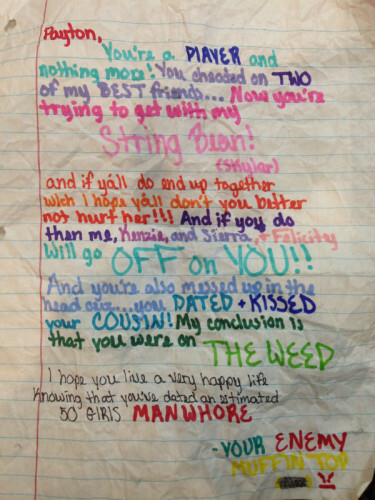 Payton,
You're a PLAYER and
nothing more! You cheated on TWO
of my BEST friends... Now you're
trying to get with my
String Bean!
(Skylar)
and if yáll do end up together
wich I hope yáll don't you better
not hurt her!!! And if you do
then me, Kenzie, and Sierra, + Felicity
Will go OFF on YOU!!
And you're also messed up in the
head cuz... you DATED + KISSED
your COUSIN! My conclusion is
that you were on THE WEED
I hope you live a very happy life
Knowing that you've dated an estimated
50 GIRLS MANWHORE
-YOUR ENEMY
MUFFIN TOP